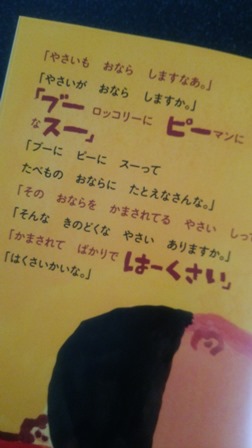 「やさいも おなら しますなあ。」
「やさいが おなら しますか。」
「ブーロッコリーに ピーマンに
なスー」
「ブーに ピーに スーって
たべもの おならに たとえなさんな。」
「その おならを かまされてる やさい しっ
「そんな きのどくな やさい ありますか。」
「かまされて ばかりで はーくさい」
「はくさいかいな。」